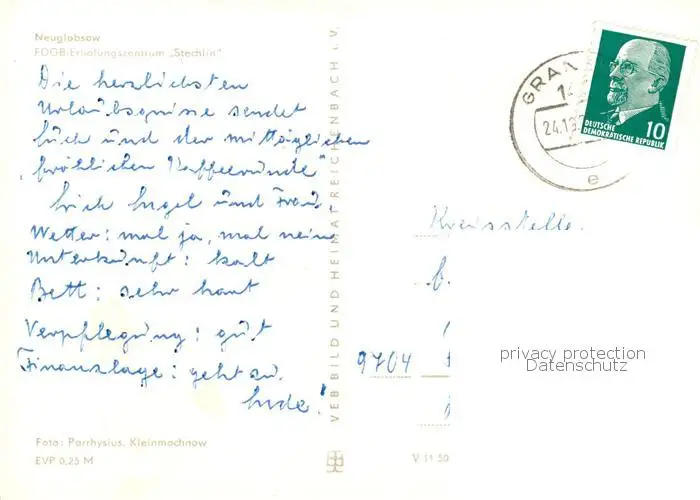 Neuglobsow
FDGB-Erholungszentrum „Stechlin"
Die herzlichsten
Urlaubsgrüsse sendet
Euch und der mittäglichen
„fröhlichen Kaffeerunde"
Erich Engel und Frau
Wetter: mal ja, mal nein
Unterkunft: kalt
Bett: sehr hart
Verpflegung: gut
Finanzlage: geht so.
Ende!
Foto: Parrhysius, Kleinmachnow
EVP 0,25 M
VEB BILD UND HEIMAT REICHENBACH i. V.
V 11 50
GRAN
14
24.1
e
DEUTSCHE
DEMOKRATISCHE REPUBLIK
10
Kreisstelle.
9704
privacy protection
Datenschutz